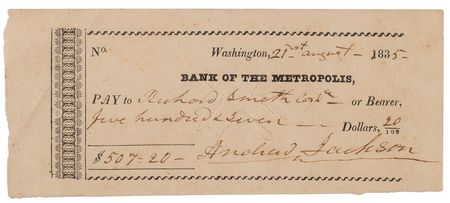 No. Washington, 21st august - 1835-
BANK OF THE METROPOLIS,
PAY to Richard Smith Cash - or Bearer,
five hundred & seven - Dollars, 20/100
$507-20- Andrew Jackson